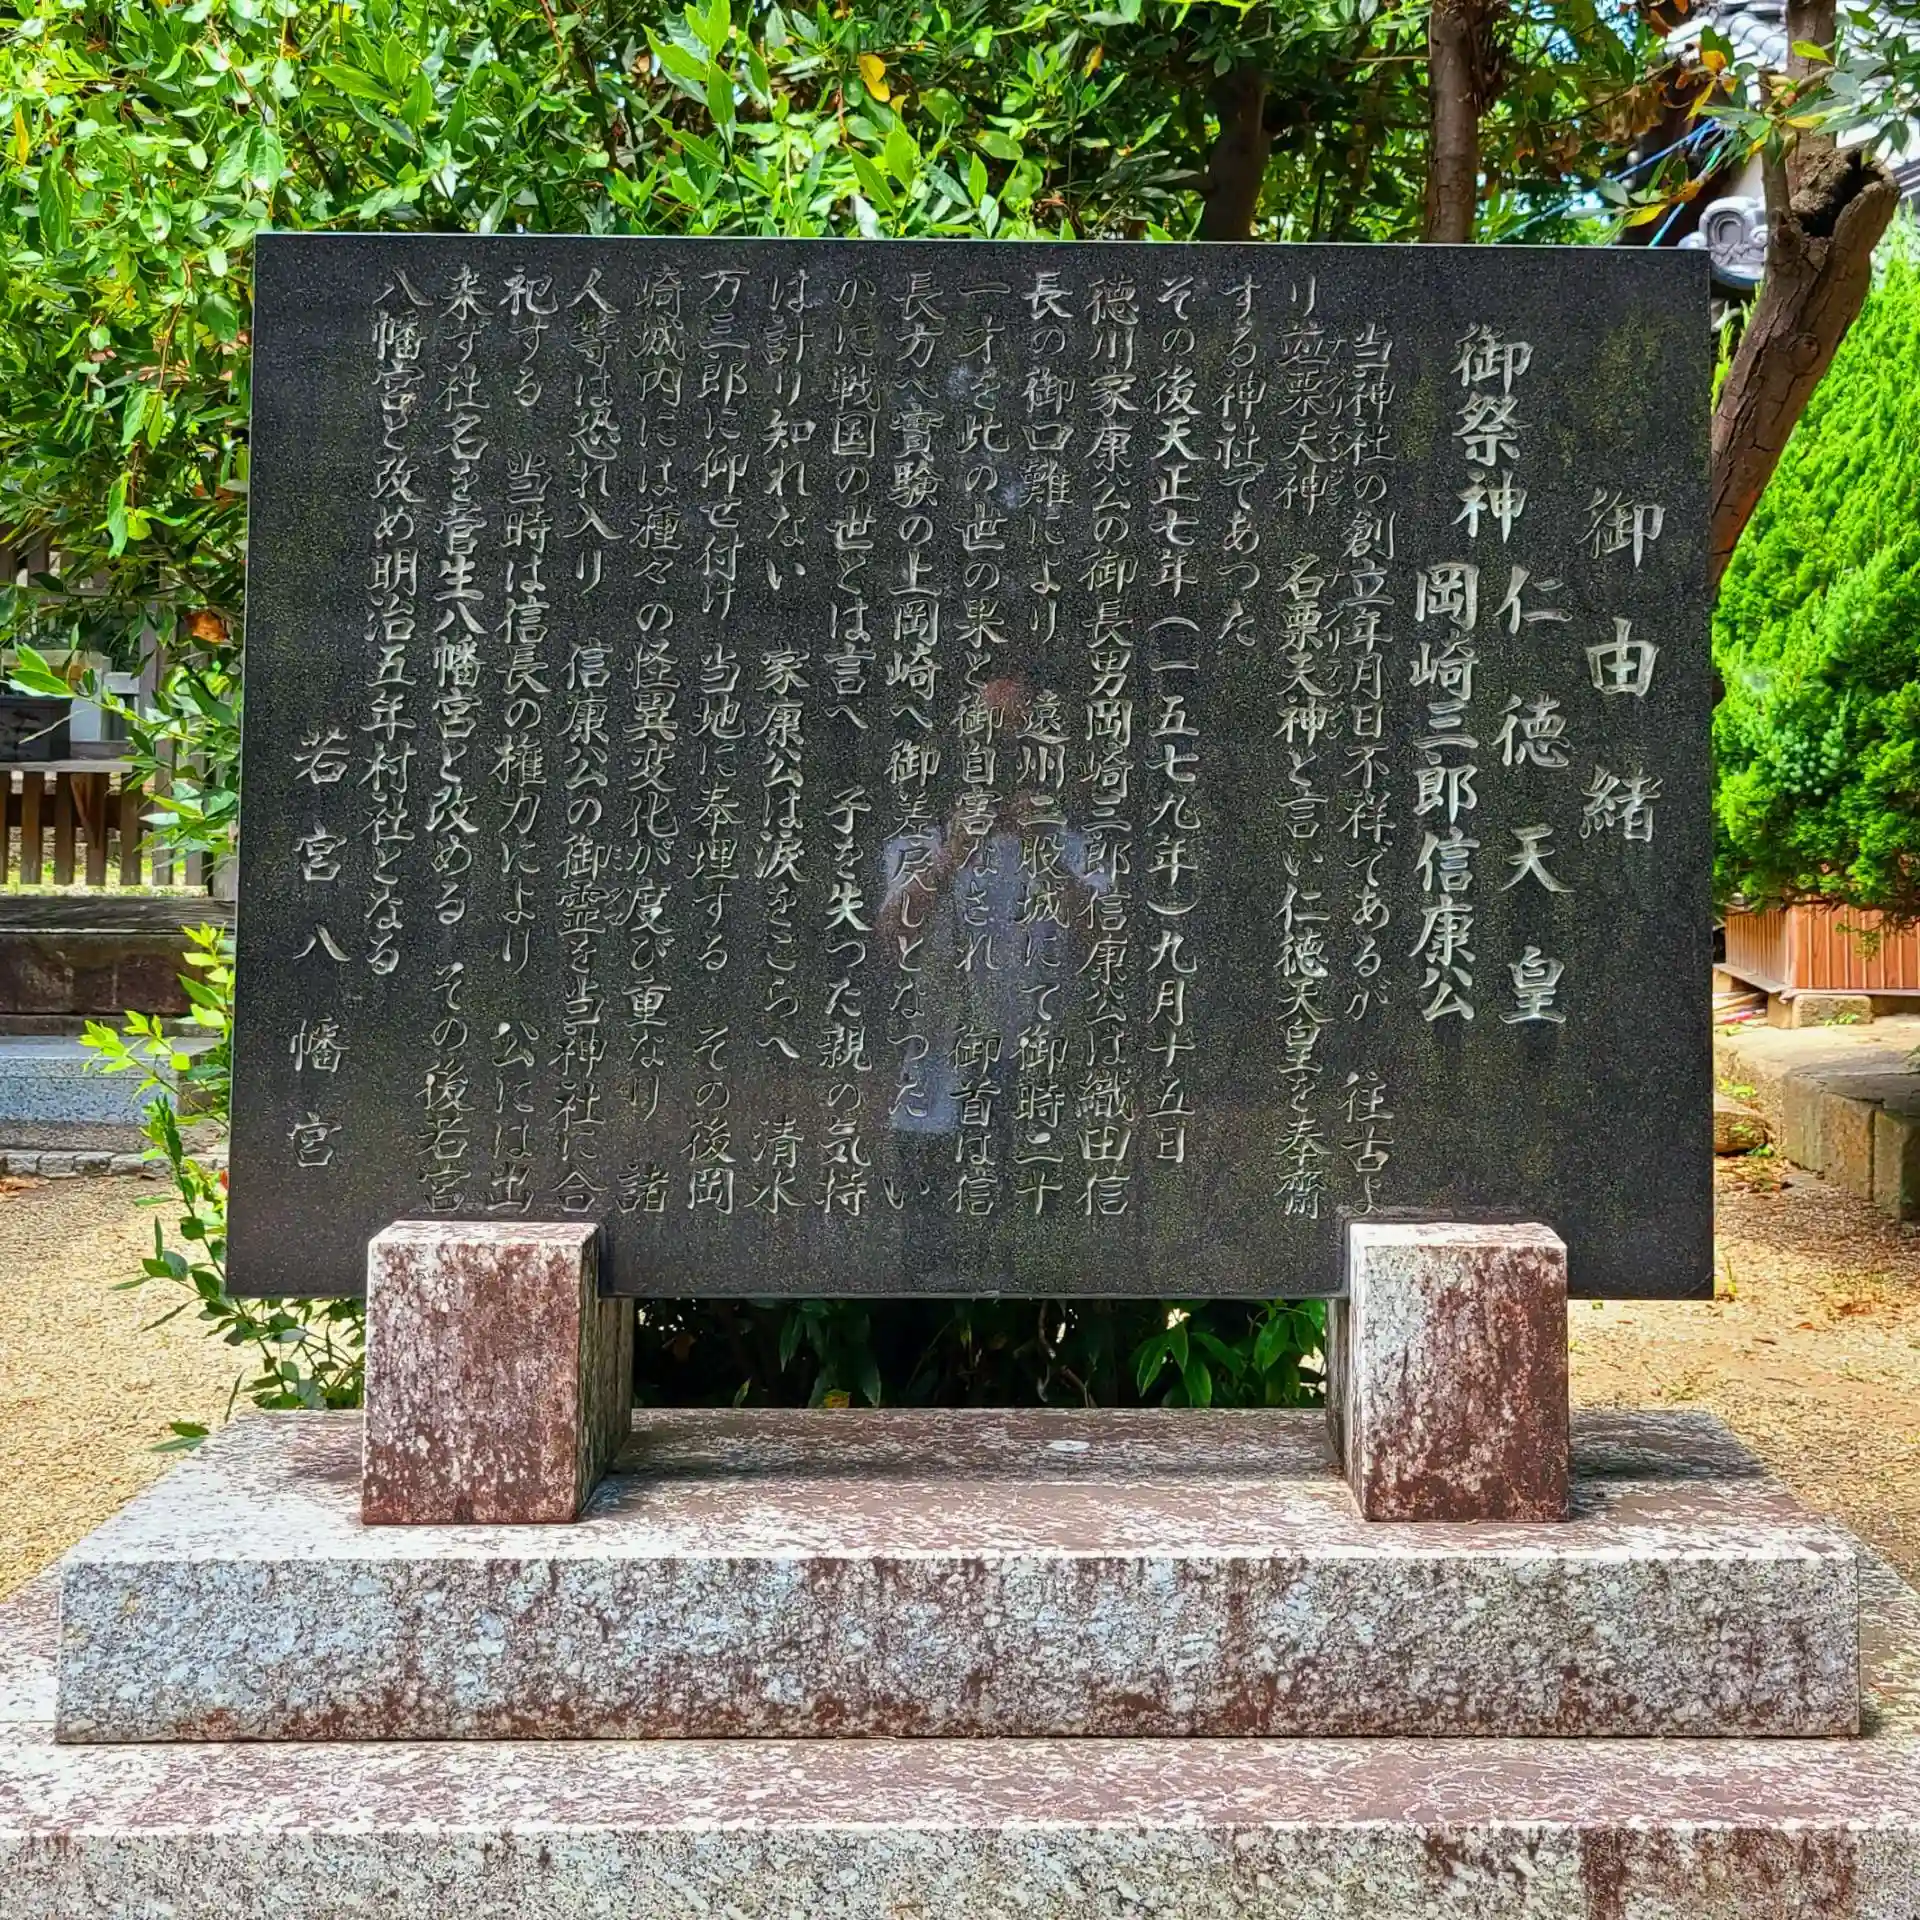 御由緒
御祭神 仁徳天皇
岡崎三郎信康公
当神社の創立年月日不祥であるが 往古よ
り竝栗天神 名栗天神と言い仁徳天皇を奉齋
する神社であった
その後天正七年(一五七九年)九月十五日
徳川家康公の御長男岡崎三郎信康公は織田信
長の御口難により 遠州二股城にて御時二十
一才を此の世の果と御自害なされ 御首は信
長方へ實験の上岡崎へ御差戻しとなった い
かに戦国の世とは言へ 子を失つた親の気持
は計り知れない 家康公は涙をこらへ 清水
万三郎に仰せ付け 当地に奉埋する その後岡
崎城内には種々の怪異変化が度び重なり 諸
人等は恐れ入り 信康公の御霊を当神社に合
祀する 当時は信長の権力により 公には出
来ず社名を菅生八幡宮と改める その後若宮
八幡宮と改め明治五年村社となる
若宮八幡宮